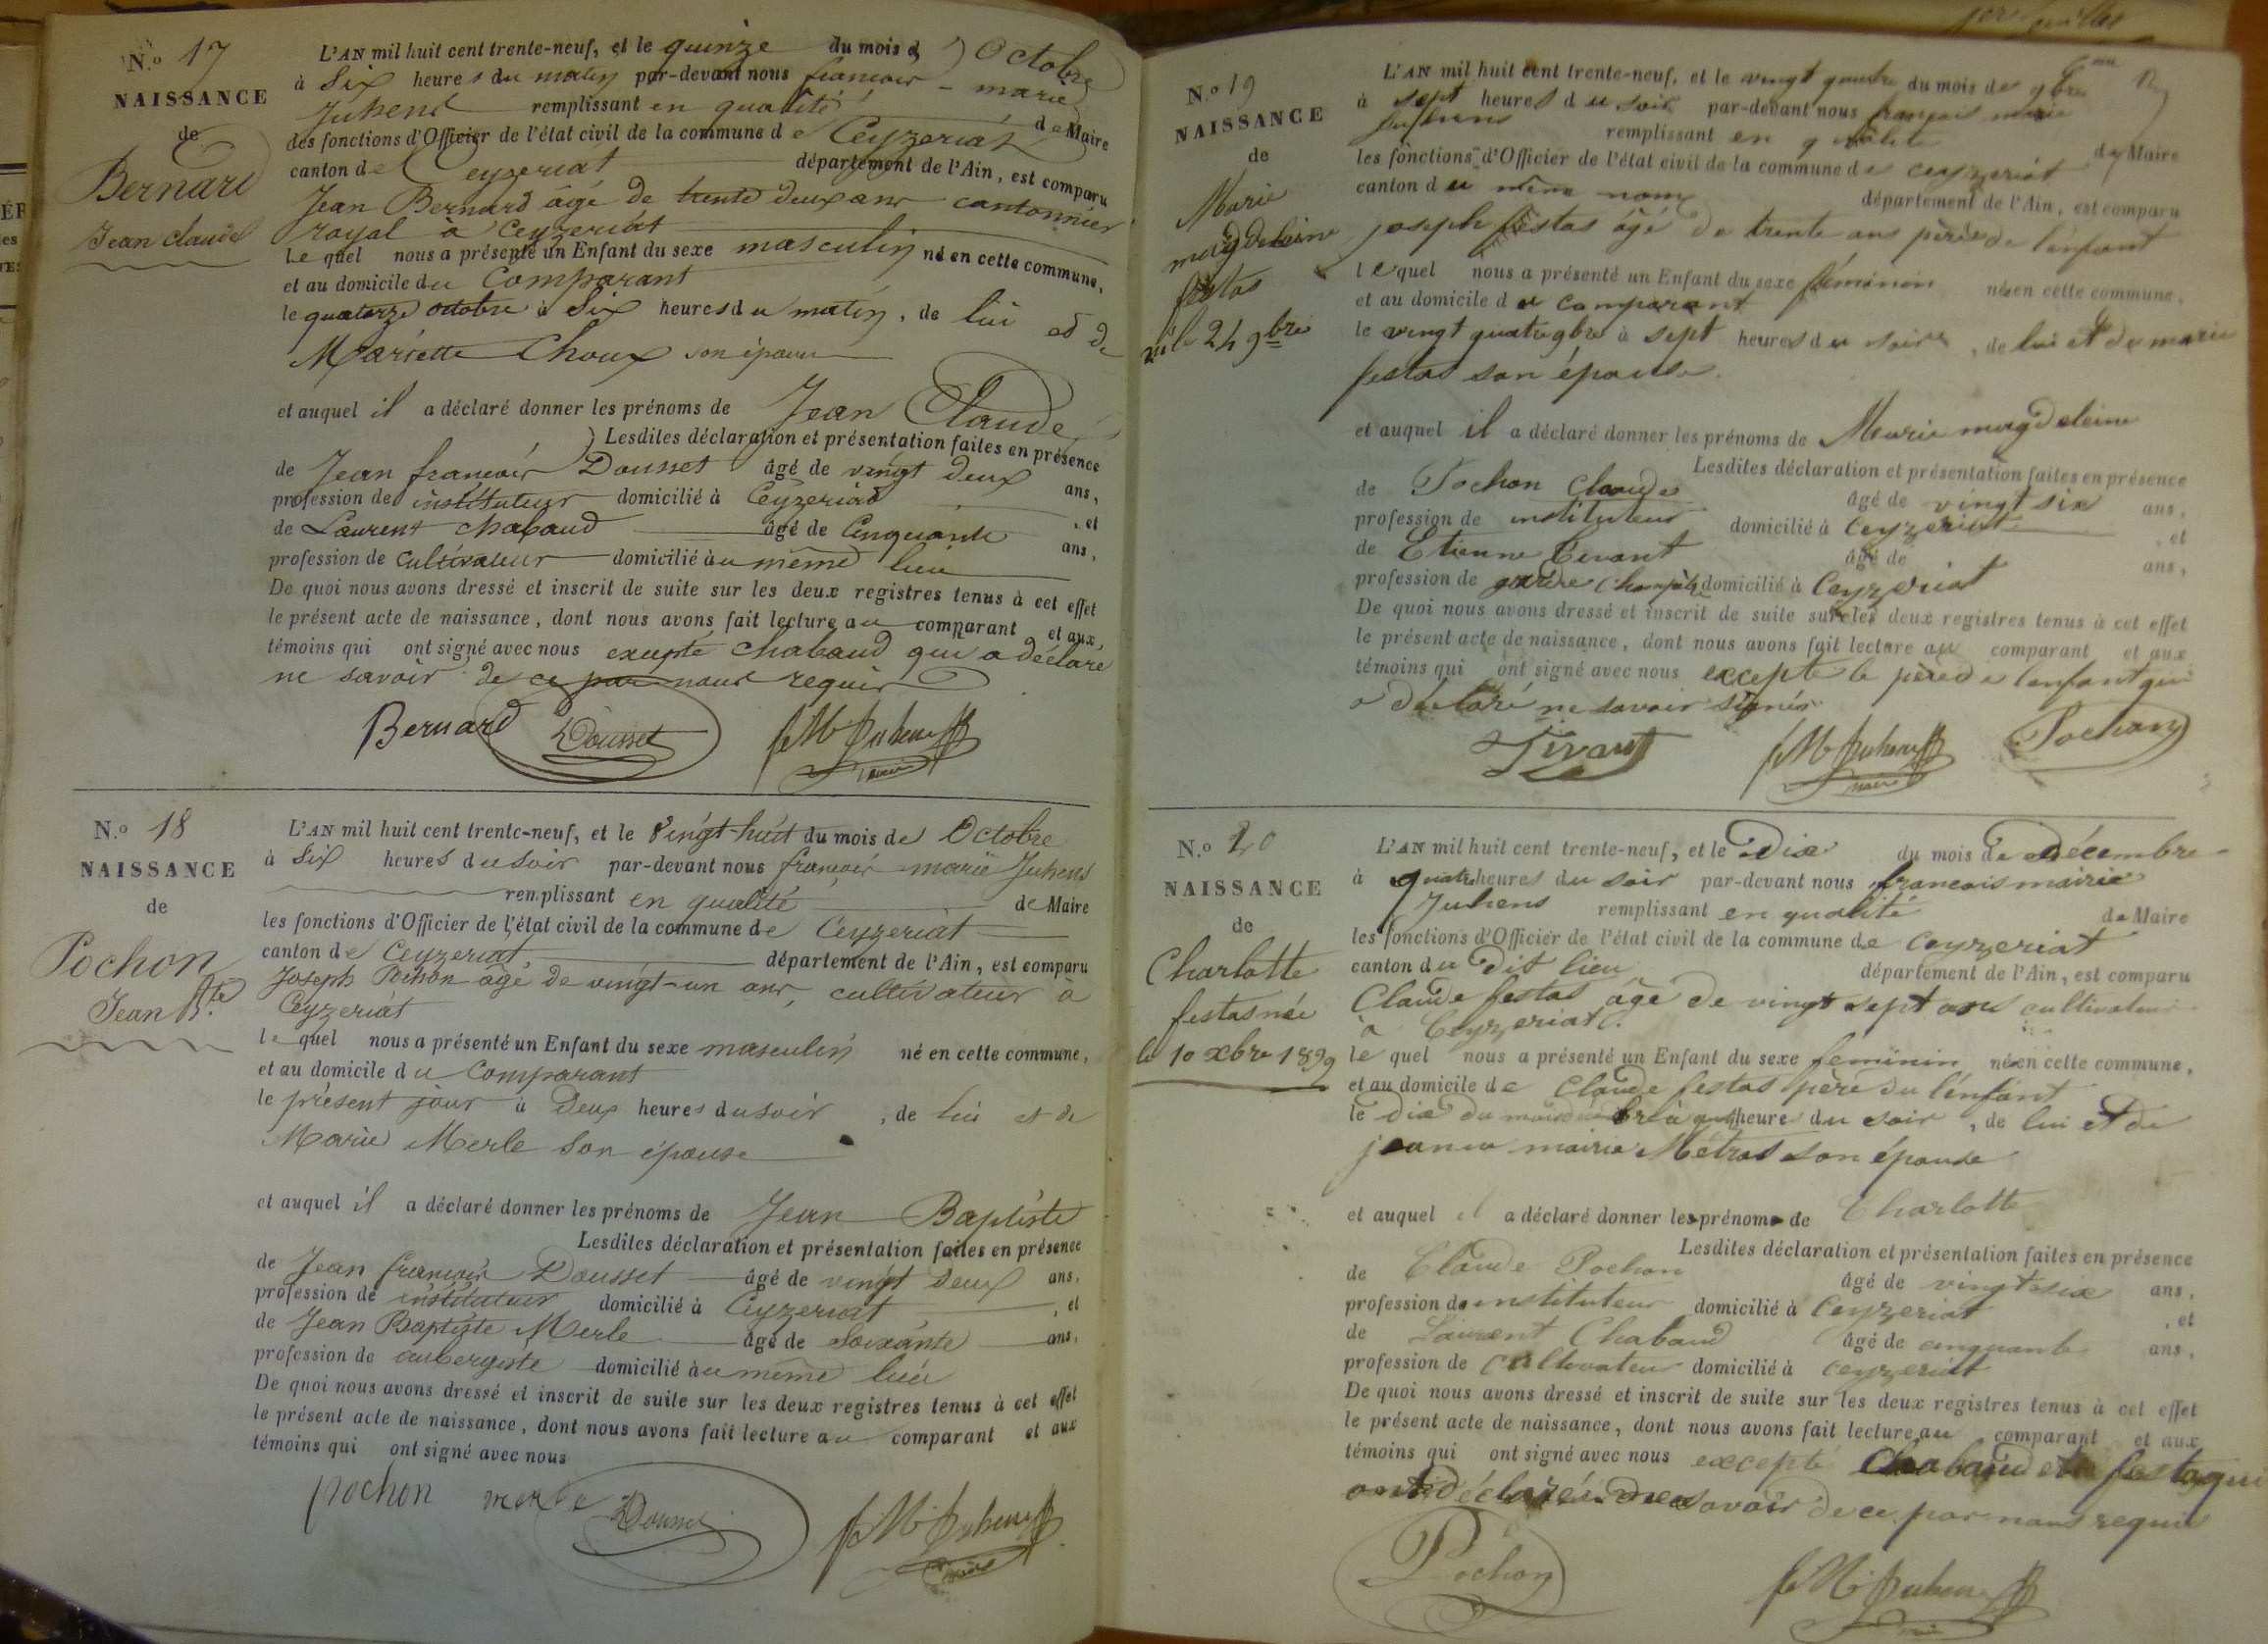 N.o 17
NAISSANCE
de
Bernard
Jean Claude
L'AN mil huit cent trente-neuf, et le quinze du mois d' Octobre
à Six heures du matin par-devant nous françois-marie
Juhens remplissant en qualité de Maire
des fonctions d'Officier de l'état civil de la commune de Ceyzeriat
canton de Ceyzeriat département de l'Ain, est comparu
Jean Bernard âgé de trente deux ans cantonnier
royal à Ceyzeriat
Le quel nous a présenté un Enfant du sexe masculin né en cette commune,
et au domicile du Comparant
le quatorze octobre à Six heures du matin, de lui et de
Mariette Choux son épouse
et auquel il a déclaré donner les prénoms de Jean Claude
Lesdites déclaration et présentation faites en présence
de Jean françois Dousset âgé de vingt deux ans,
profession de instituteur domicilié à Ceyzeriat, et
de Laurent chabaud âgé de Cinquante ans,
profession de cultivateur domicilié au même lieu
De quoi nous avons dressé et inscrit de suite sur les deux registres tenus à cet effet
le présent acte de naissance, dont nous avons fait lecture au comparant et aux
témoins qui ont signé avec nous excepté chabaud qui a déclaré
ne savoir de ce par nous requis
Bernard Dousset f M Juhens
maire
N.o 18
NAISSANCE
de
Pochon
Jean Bte
L'AN mil huit cent trente-neuf, et le Vingt-huit du mois de Octobre
à Six heures du soir par-devant nous françois marie Juhens
remplissant en qualité de Maire
les fonctions d'Officier de l'état civil de la commune de Ceyzeriat
canton de Ceyzeriat département de l'Ain, est comparu
Joseph Pochon âgé de vingt-un ans, cultivateur à
Ceyzeriat
le quel nous a présenté un Enfant du sexe masculin né en cette commune,
et au domicile du Comparant
le présent jour à Deux heures du soir, de lui et de
Marie Merle son épouse
et auquel il a déclaré donner les prénoms de Jean Baptiste
Lesdites déclaration et présentation faites en présence
de Jean françois Dousset âgé de vingt deux ans,
profession de instituteur domicilié à Ceyzeriat, et
de Jean Baptiste Merle âgé de Soixante ans,
profession de aubergiste domicilié au même lieu
De quoi nous avons dressé et inscrit de suite sur les deux registres tenus à cet effet
le présent acte de naissance, dont nous avons fait lecture au comparant et aux
témoins qui ont signé avec nous
pochon merle Dousset f M Juhens
maire
N.o 19
NAISSANCE
de
Marie
magdeleine
festas
né le 24 9bre
L'AN mil huit cent trente-neuf, et le vingt quatre du mois de 9bre
à sept heures du soir par-devant nous françois marie
Juhens remplissant en qualité de Maire
les fonctions d'Officier de l'état civil de la commune de ceyzeriat
canton du même nom département de l'Ain, est comparu
joseph festas âgé de trente ans père de l'enfant
lequel nous a présenté un Enfant du sexe féminin née en cette commune,
et au domicile du comparant
le vingt quatre 9bre à sept heures du soir, de lui et de marie
festas son épouse.
et auquel il a déclaré donner les prénoms de Marie magdeleine
Lesdites déclaration et présentation faites en présence
de Pochon Claude âgé de vingt six ans,
profession de instituteur domicilié à Ceyzeriat, et
de Etienne Tivant âgé de ans,
profession de garde Champêtre domicilié à Ceyzeriat
De quoi nous avons dressé et inscrit de suite sur les deux registres tenus à cet effet
le présent acte de naissance, dont nous avons fait lecture au comparant et aux
témoins qui ont signé avec nous excepté le père de l'enfant qui
a déclaré ne savoir signer
Tivant f M Juhens Pochon
maire
N.o 20
NAISSANCE
de
Charlotte
festas née
le 10 xbre 1839
L'AN mil huit cent trente-neuf, et le Dix du mois de décembre
à quatre heures du soir par-devant nous francois mairie
Juhens remplissant en qualité de Maire
les fonctions d'Officier de l'état civil de la commune de ceyzeriat
canton du Dit lieu département de l'Ain, est comparu
Claude festas âgé de vingt sept ans cultivateur
à Ceyzeriat.
le quel nous a présenté un Enfant du sexe feminin née en cette commune,
et au domicile de Claude festas père du l'enfant
le dix du mois à heure du soir, de lui et de
jeanne mairie Métras son épouse
et auquel il a déclaré donner les prénoms de Charlotte
Lesdites déclaration et présentation faites en présence
de Claude Pochon âgé de vingt six ans,
profession de instituteur domicilié à Ceyzeriat, et
de Laurent Chabaud âgé de cinquante ans,
profession de Cultivateur domicilié à ceyzeriat
De quoi nous avons dressé et inscrit de suite sur les deux registres tenus à cet effet
le présent acte de naissance, dont nous avons fait lecture au comparant et aux
témoins qui ont signé avec nous excepté Chabaud et festas qui
ont déclaré savoir de ce par nous requis
Pochon f M Juhens